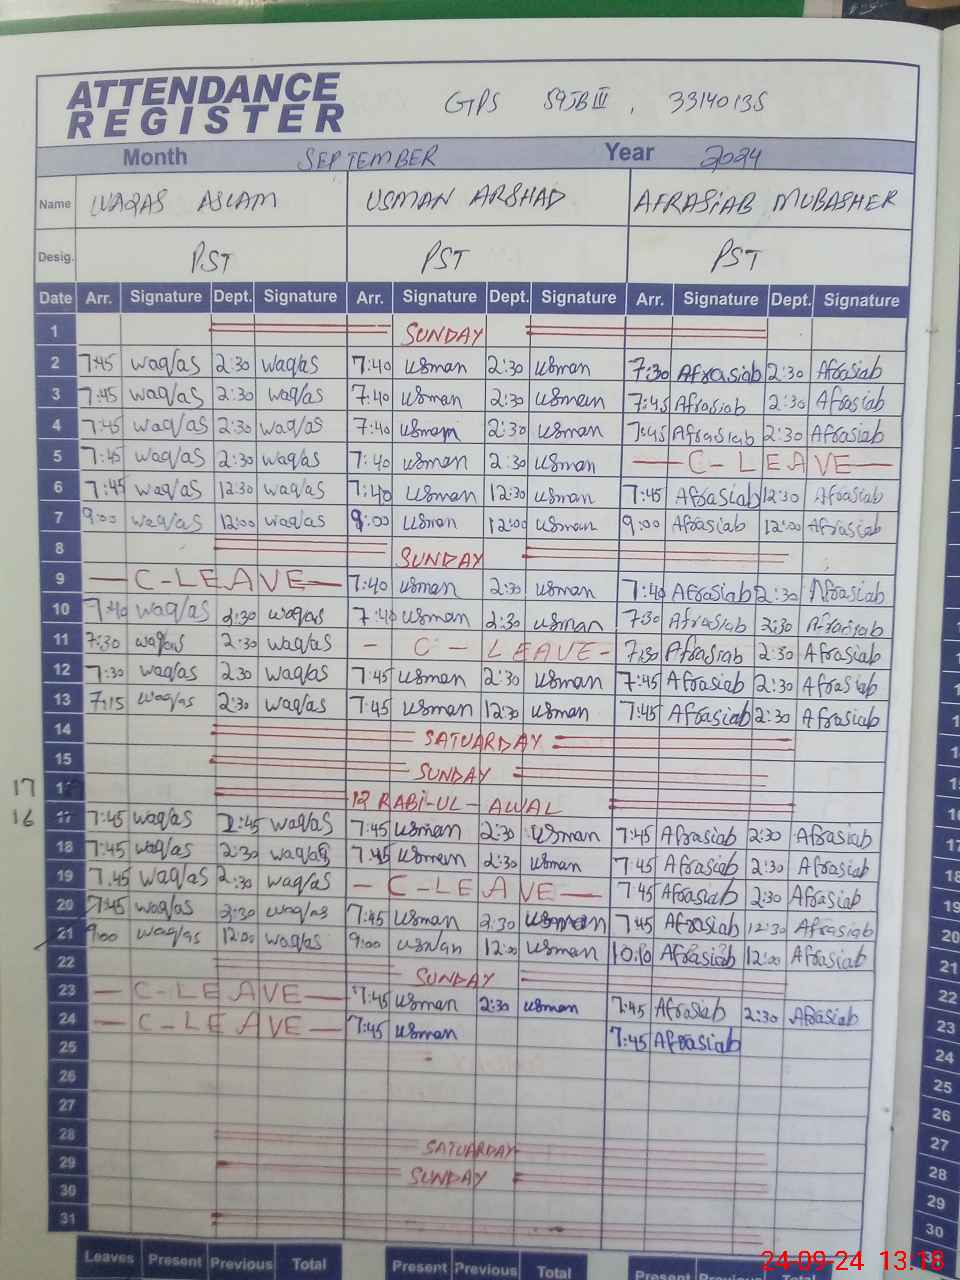 ATTENDANCE REGISTER GPS 59JB III , 33140135
Month SEPTEMBER Year 2024
Name WAQAS ASLAM USMAN ARSHAD AFRASiAB MUBASHER
Desig. PST PST PST
Date Arr. Signature Dept. Signature Arr. Signature Dept. Signature Arr. Signature Dept. Signature
1 SUNDAY
2 7:45 waq/as 2:30 waq/as 7:40 usman 2:30 usman 7:30 Afrasiab 2:30 Afrasiab
3 7:45 waq/as 2:30 waq/as 7:40 usman 2:30 usman 7:45 Afrasiab 2:30 Afrasiab
4 7:45 waq/as 2:30 waq/as 7:40 usman 2:30 usman 7:45 Afrasiab 2:30 Afrasiab
5 7:45 waq/as 2:30 waq/as 7:40 usman 2:30 usman C-LEAVE
6 7:45 waq/as 12:30 waq/as 7:40 usman 12:30 usman 7:45 Afrasiab 12:30 Afrasiab
7 9:00 waq/as 12:00 waq/as 9:00 usman 12:00 usman 9:00 Afrasiab 12:00 Afrasiab
8 SUNDAY
9 C-LEAVE 7:40 usman 2:30 usman 7:40 Afrasiab 2:30 Afrasiab
10 7:40 waq/as 2:30 waq/as 7:40 usman 2:30 usman 7:30 Afrasiab 2:30 Afrasiab
11 7:30 waq/as 2:30 waq/as C-LEAVE 7:30 Afrasiab 2:30 Afrasiab
12 7:30 waq/as 2:30 waq/as 7:45 usman 2:30 usman 7:45 Afrasiab 2:30 Afrasiab
13 7:15 waq/as 2:30 waq/as 7:45 usman 12:30 usman 7:45 Afrasiab 2:30 Afrasiab
14 SATUARDAY
15 SUNDAY
17 12 RABI-UL-AWAL
16 17 7:45 waq/as 2:45 waq/as 7:45 usman 2:30 usman 7:45 Afrasiab 2:30 Afrasiab
18 7:45 waq/as 2:30 waq/as 7:45 usman 2:30 usman 7:45 Afrasiab 2:30 Afrasiab
19 7:45 waq/as 2:30 waq/as C-LEAVE 7:45 Afrasiab 2:30 Afrasiab
20 7:45 waq/as 2:30 waq/as 7:45 usman 2:30 usman 7:45 Afrasiab 12:30 Afrasiab
21 9:00 waq/as 12:00 waq/as 9:00 usman 12:00 usman 10:10 Afrasiab 12:00 Afrasiab
22 SUNDAY
23 C-LEAVE 7:45 usman 2:30 usman 7:45 Afrasiab 2:30 Afrasiab
24 C-LEAVE 7:45 usman 7:45 Afrasiab
25
26
27
28 SATUARDAY
29 SUNDAY
30
31
Leaves Present Previous Total Present Previous Total Present Previous Total
24-09-24 13:18